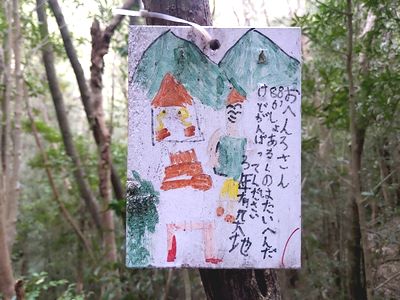 おへんろさん
88かしょあるくのはたいへんだ
けどがんばってください
3年有